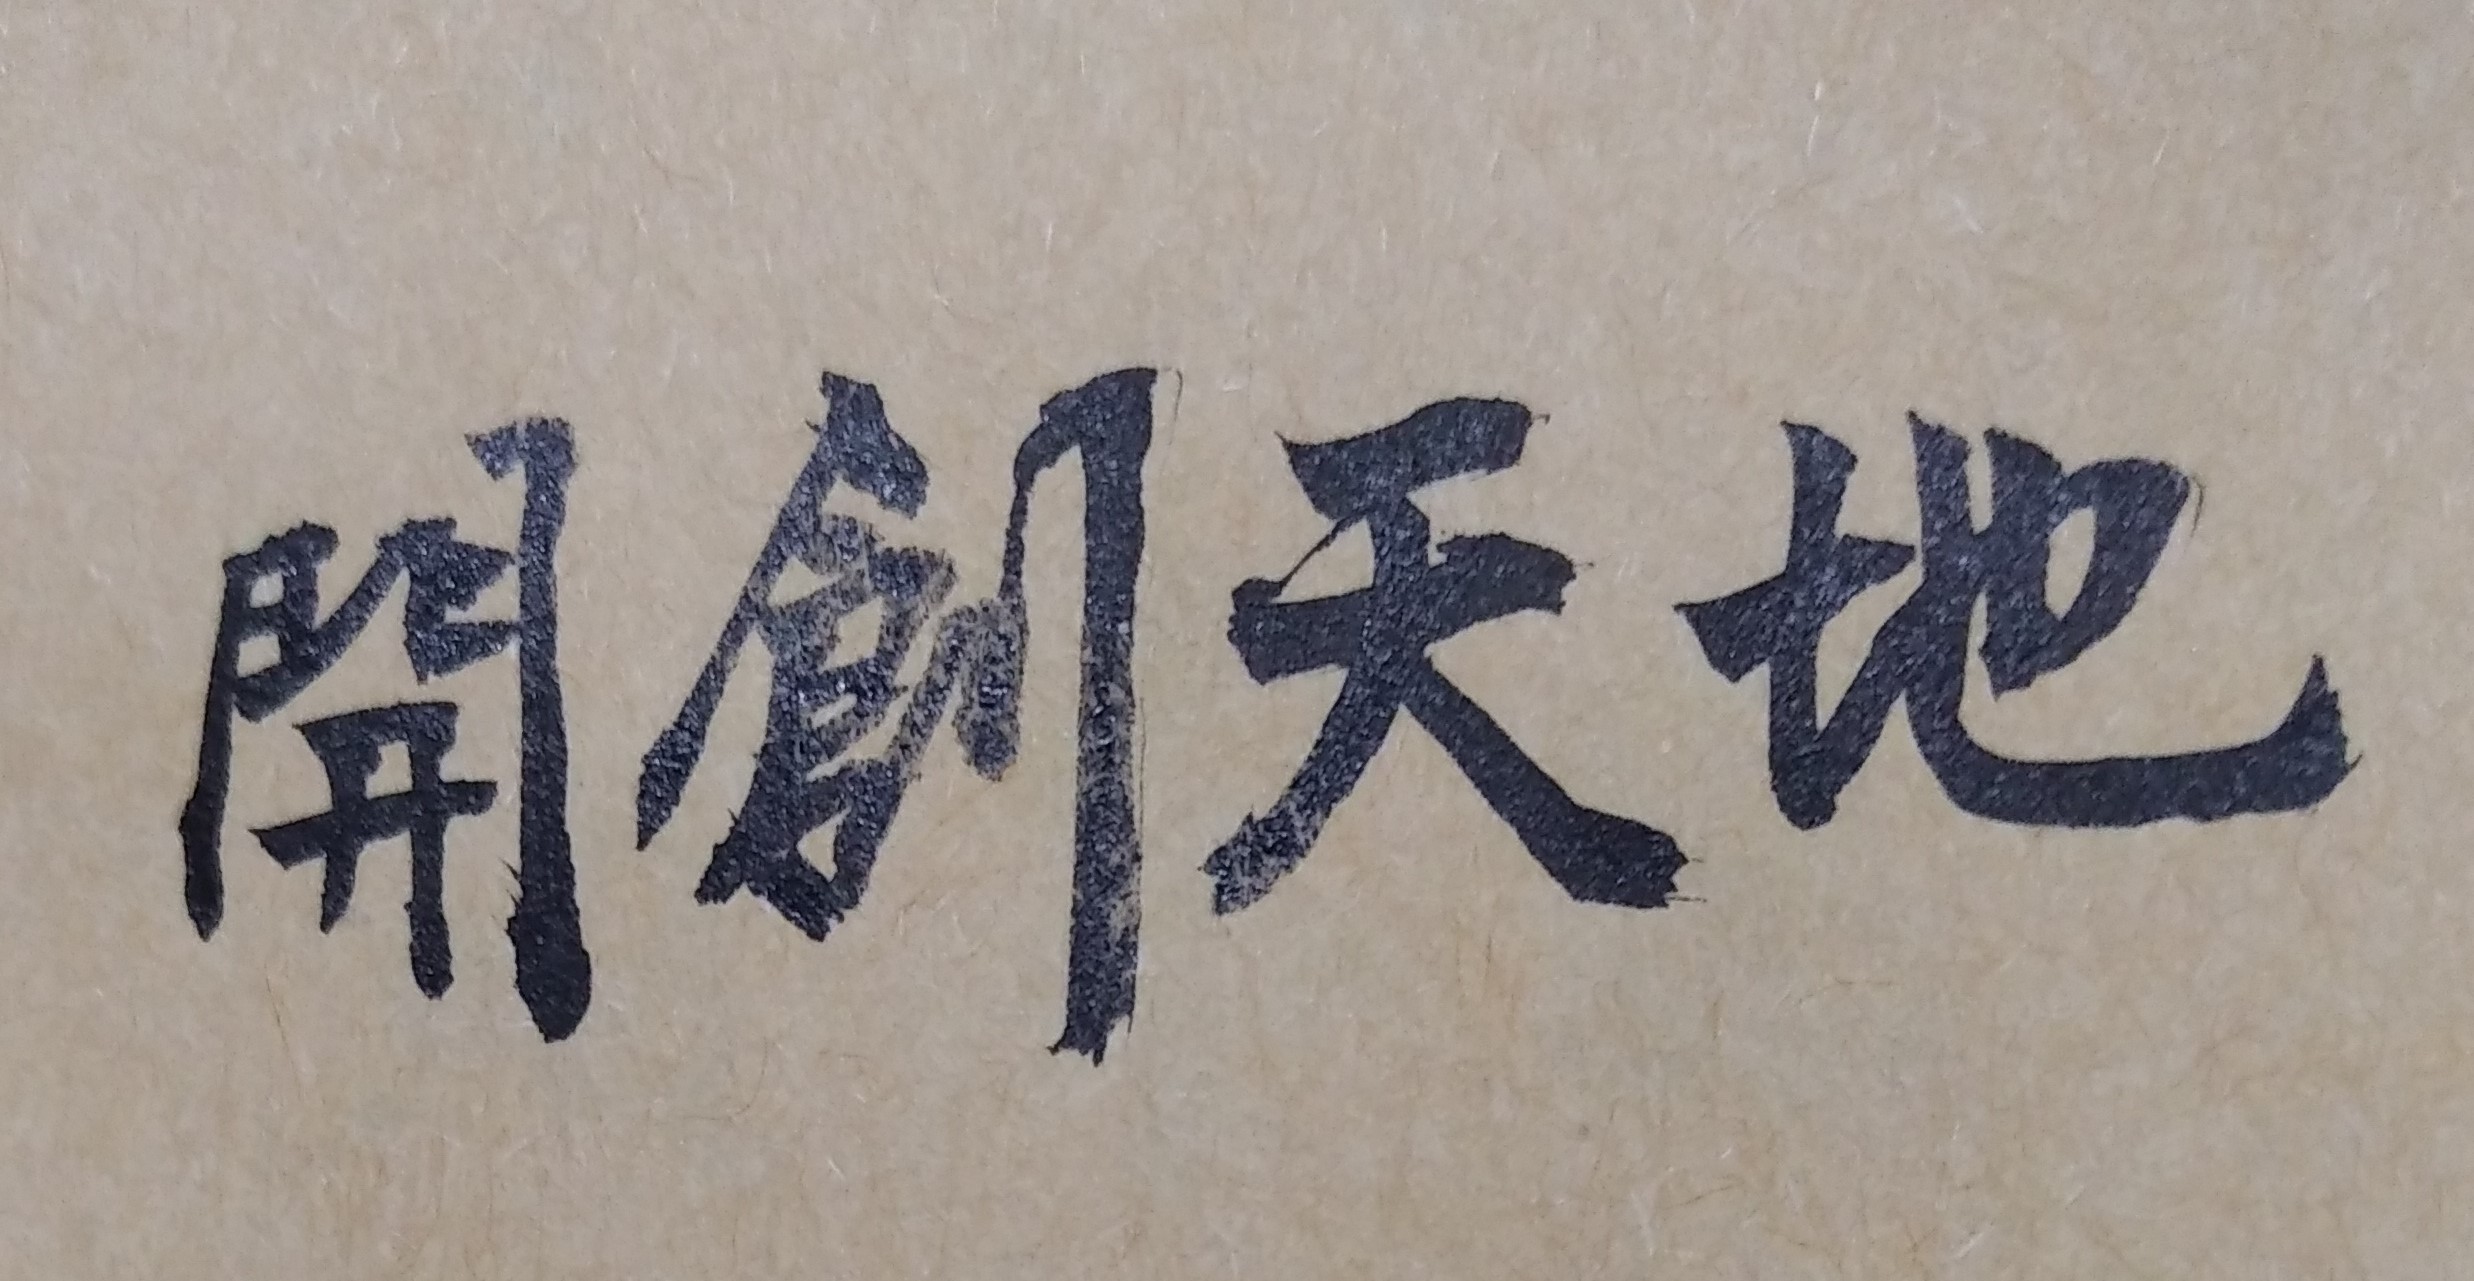 開創天地